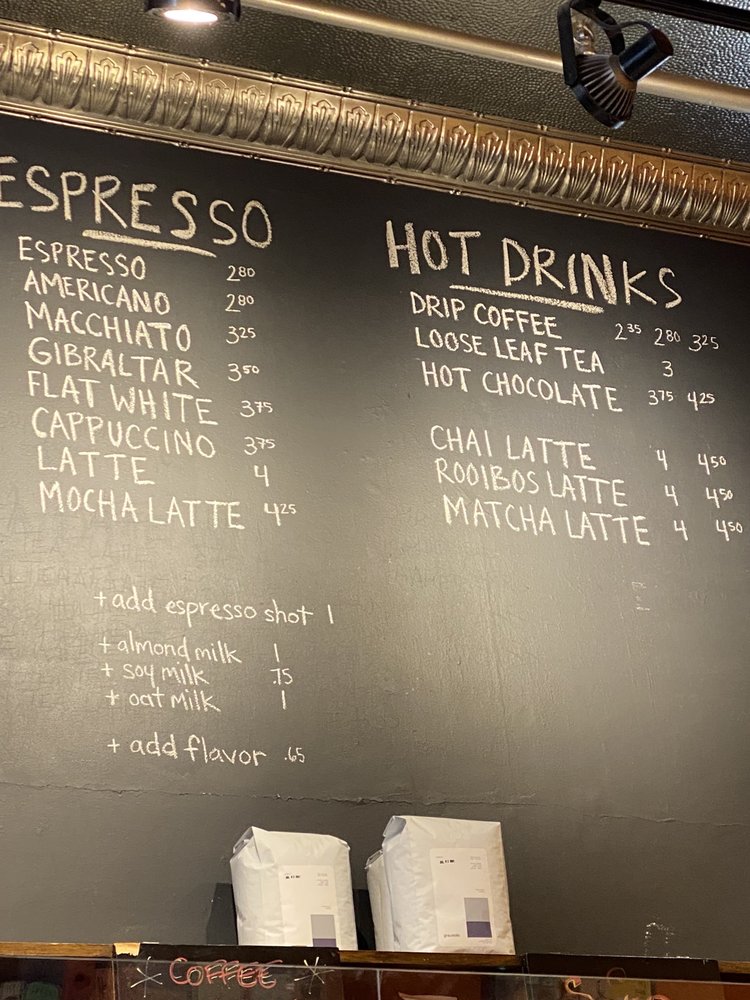 ESPRESSO
ESPRESSO 2⁸⁰
AMERICANO 2⁸⁰
MACCHIATO 3²⁵
GIBRALTAR 3⁵⁰
FLAT WHITE 3⁷⁵
CAPPUCCINO 3⁷⁵
LATTE 4
MOCHA LATTE 4²⁵
+ add espresso shot 1
+ almond milk 1
+ soy milk .75
+ oat milk 1
+ add flavor .65
HOT DRINKS
DRIP COFFEE 2³⁵ 2⁸⁰ 3²⁵
LOOSE LEAF TEA 3
HOT CHOCOLATE 3⁷⁵ 4²⁵
CHAI LATTE 4 4⁵⁰
ROOIBOS LATTE 4 4⁵⁰
MATCHA LATTE 4 4⁵⁰
COFFEE